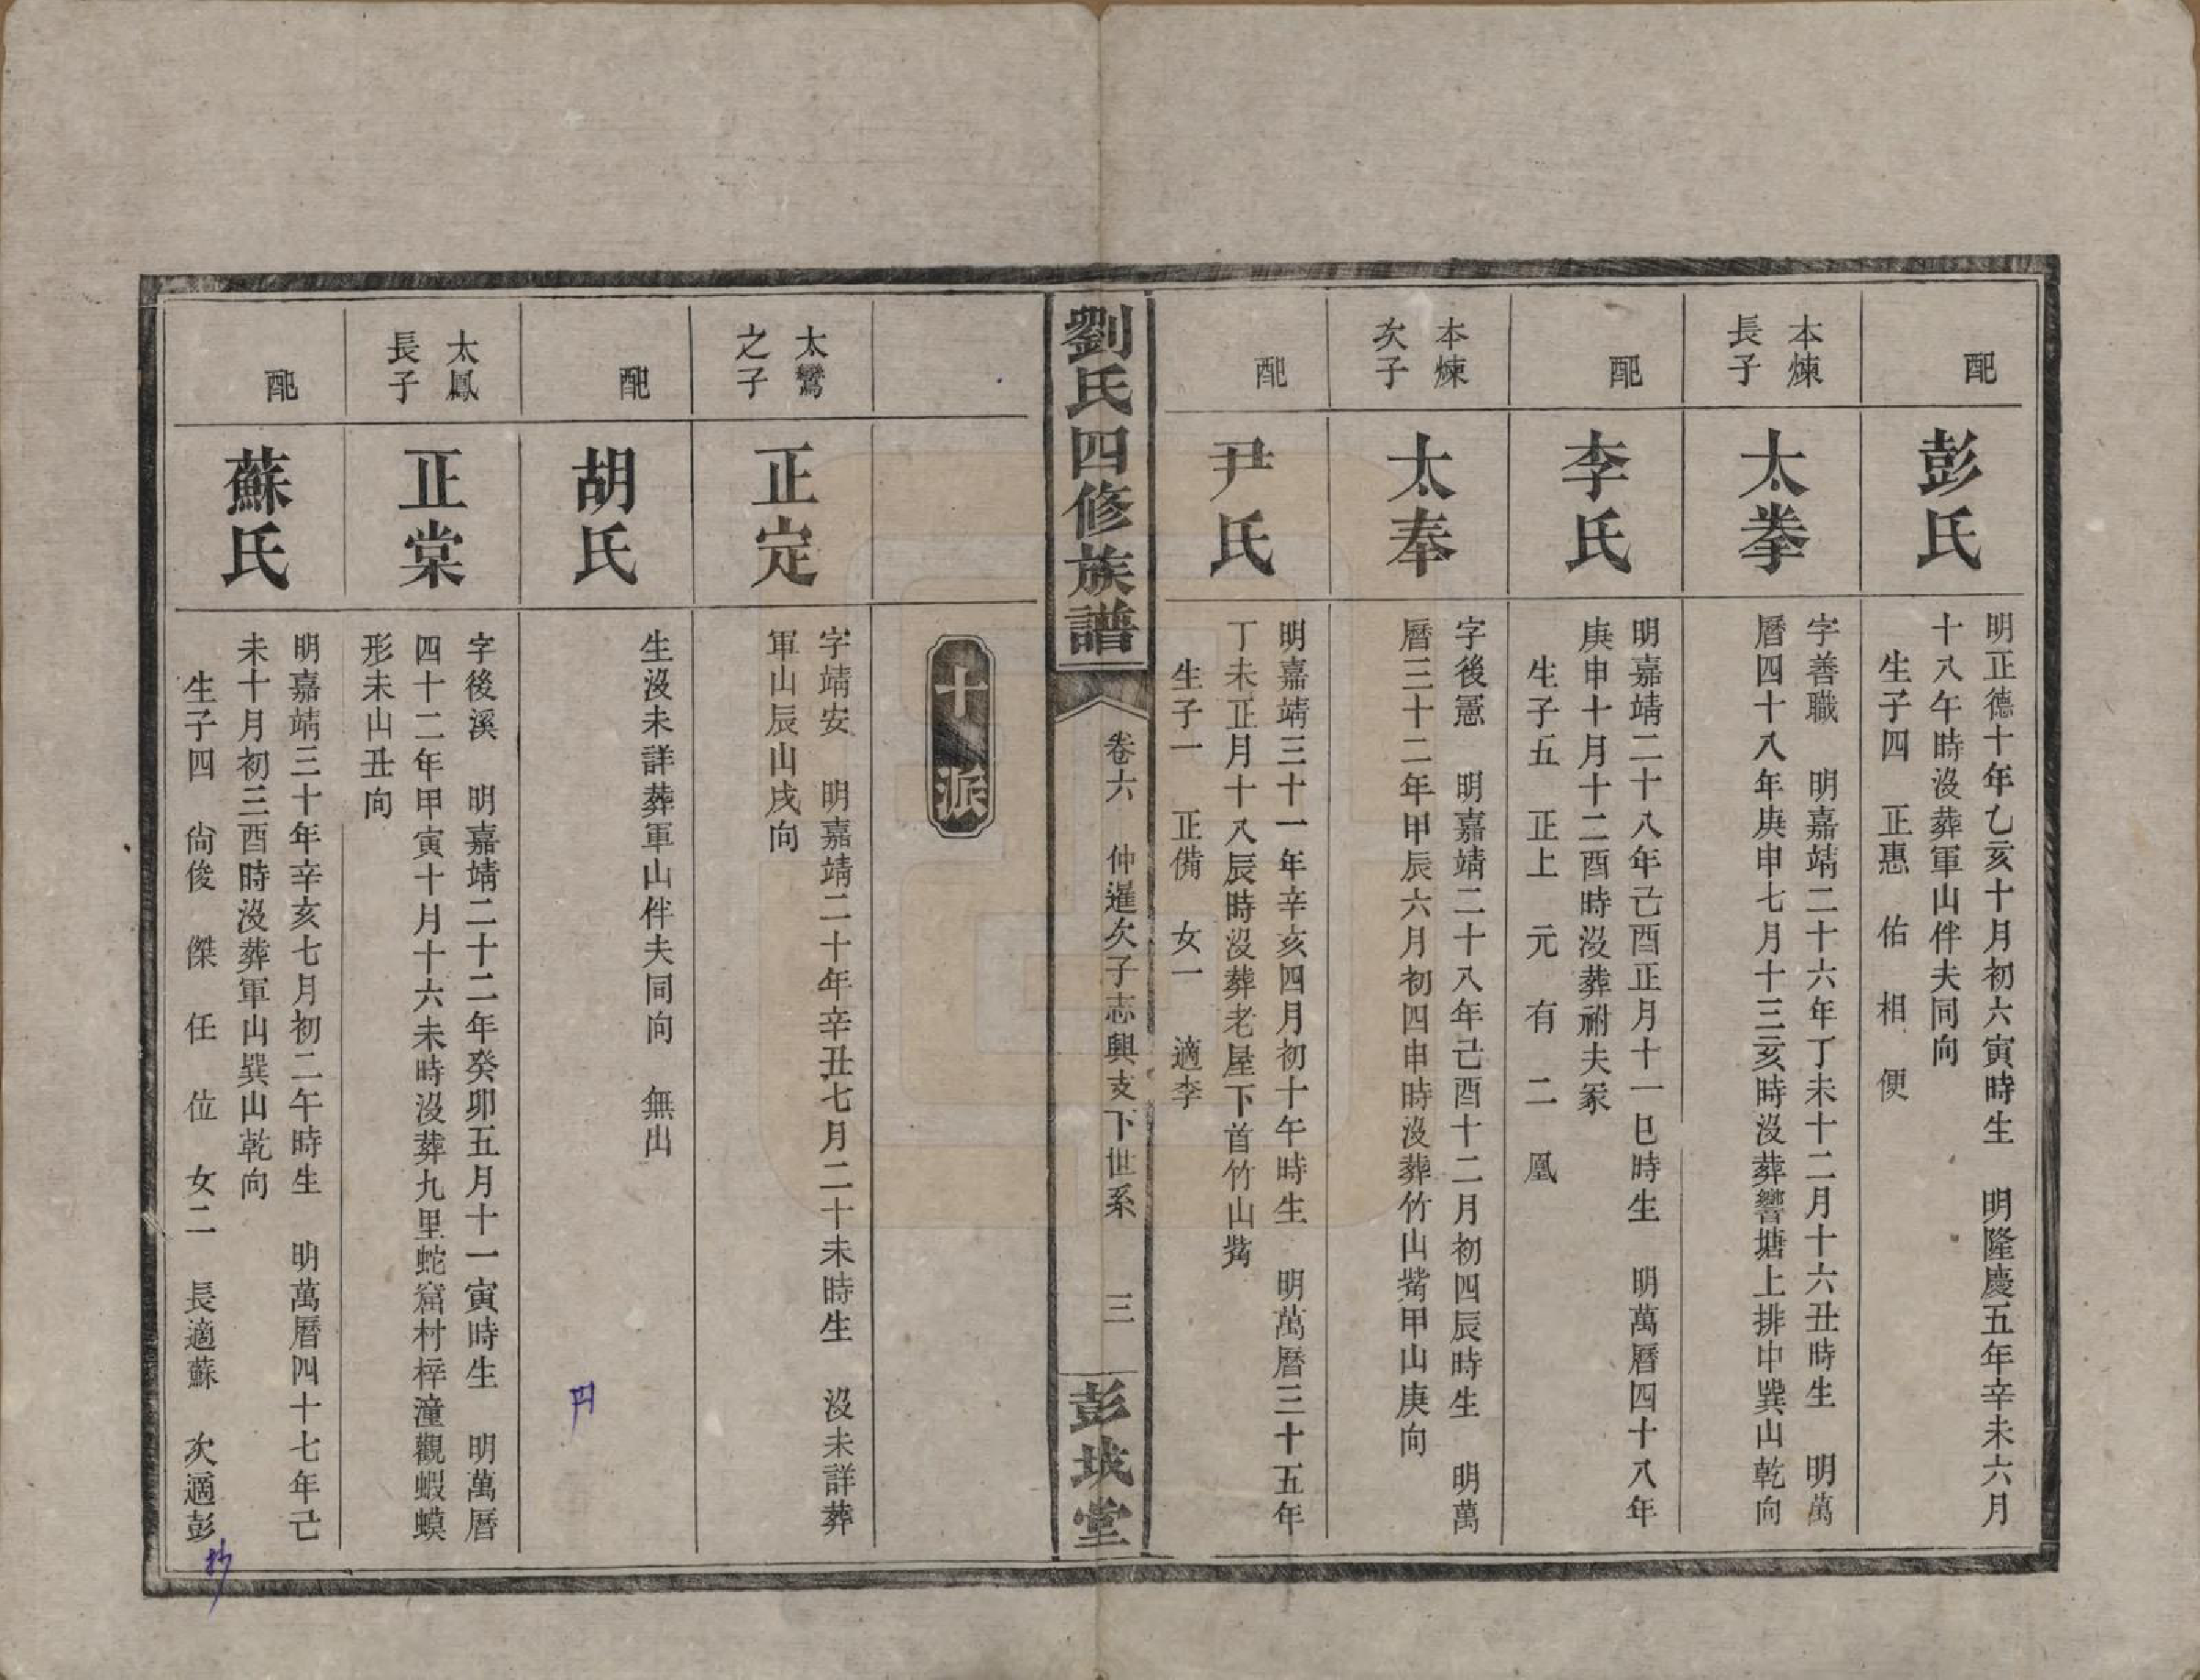 配
彭氏
明正德十年乙亥十月初六寅時生　明隆慶五年辛未六月
十八午時沒葬軍山伴夫同向
生子四　正惠　佑　相　便
本煉
長子
太拳
字善職　明嘉靖二十六年丁未十二月十六丑時生　明萬
曆四十八年庚申七月十三亥時沒葬響塘上排中巽山乾向
配
李氏
明嘉靖二十八年己酉正月十一巳時生　明萬曆四十八年
庚申十月十二酉時沒葬祔夫冢
生子五　正上　元　有　二　凰
本煉
次子
太奉
字後憲　明嘉靖二十八年己酉十二月初四辰時生　明萬
曆三十二年甲辰六月初四申時沒葬竹山觜甲山庚向
配
尹氏
明嘉靖三十一年辛亥四月初十午時生　明萬曆三十五年
丁未正月十八辰時沒葬老屋下首竹山觜
生子一　正備　女一　適李
劉氏四修族譜
卷六　仲暹次子志興支下世系　三
彭城堂
十派
太鸞
之子
正定
字靖安　明嘉靖二十年辛丑七月二十未時生　沒未詳葬
軍山辰山戌向
配
胡氏
生沒未詳葬軍山伴夫同向　無出
太鳳
長子
正棠
字後溪　明嘉靖二十二年癸卯五月十一寅時生　明萬曆
四十二年甲寅十月十六未時沒葬九里蛇窩村梓潼觀蝦蟆
形未山丑向
配
蘇氏
明嘉靖三十年辛亥七月初二午時生　明萬曆四十七年己
未十月初三酉時沒葬軍山巽山乾向
生子四　尙俊　傑　任　位　女二　長適蘇　次適彭